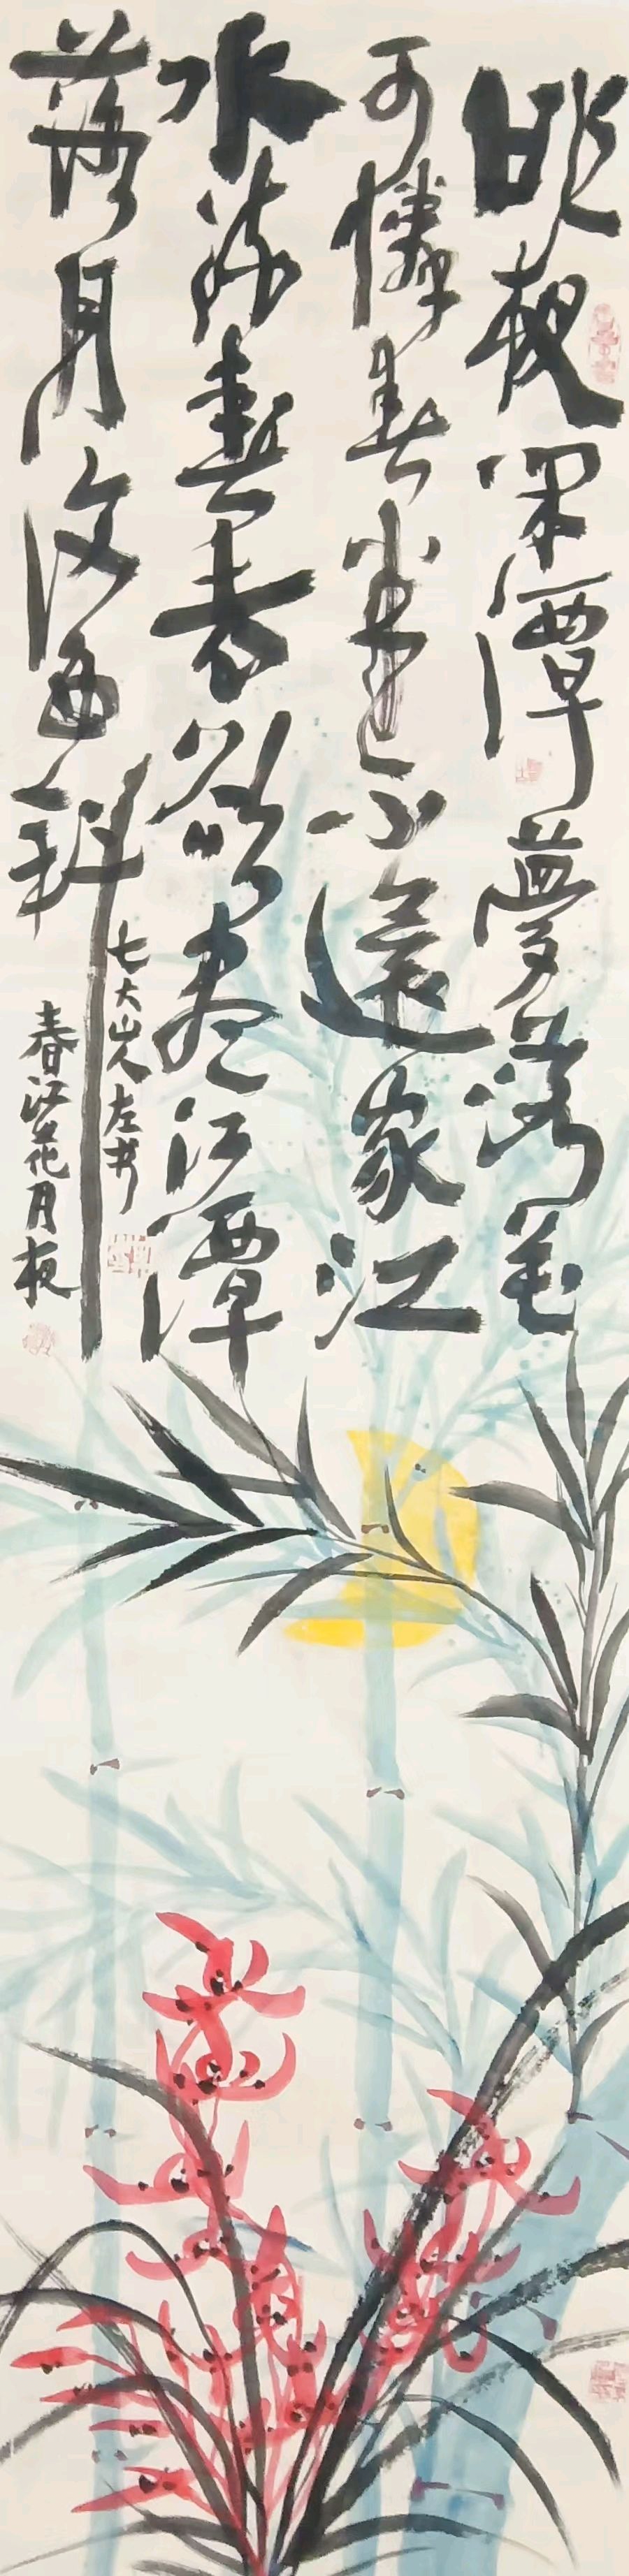 昨夜闲潭夢落花
可憐春半不還家江
水流春去欲盡江潭
落月復西斜
七大山人左书
春江花月夜